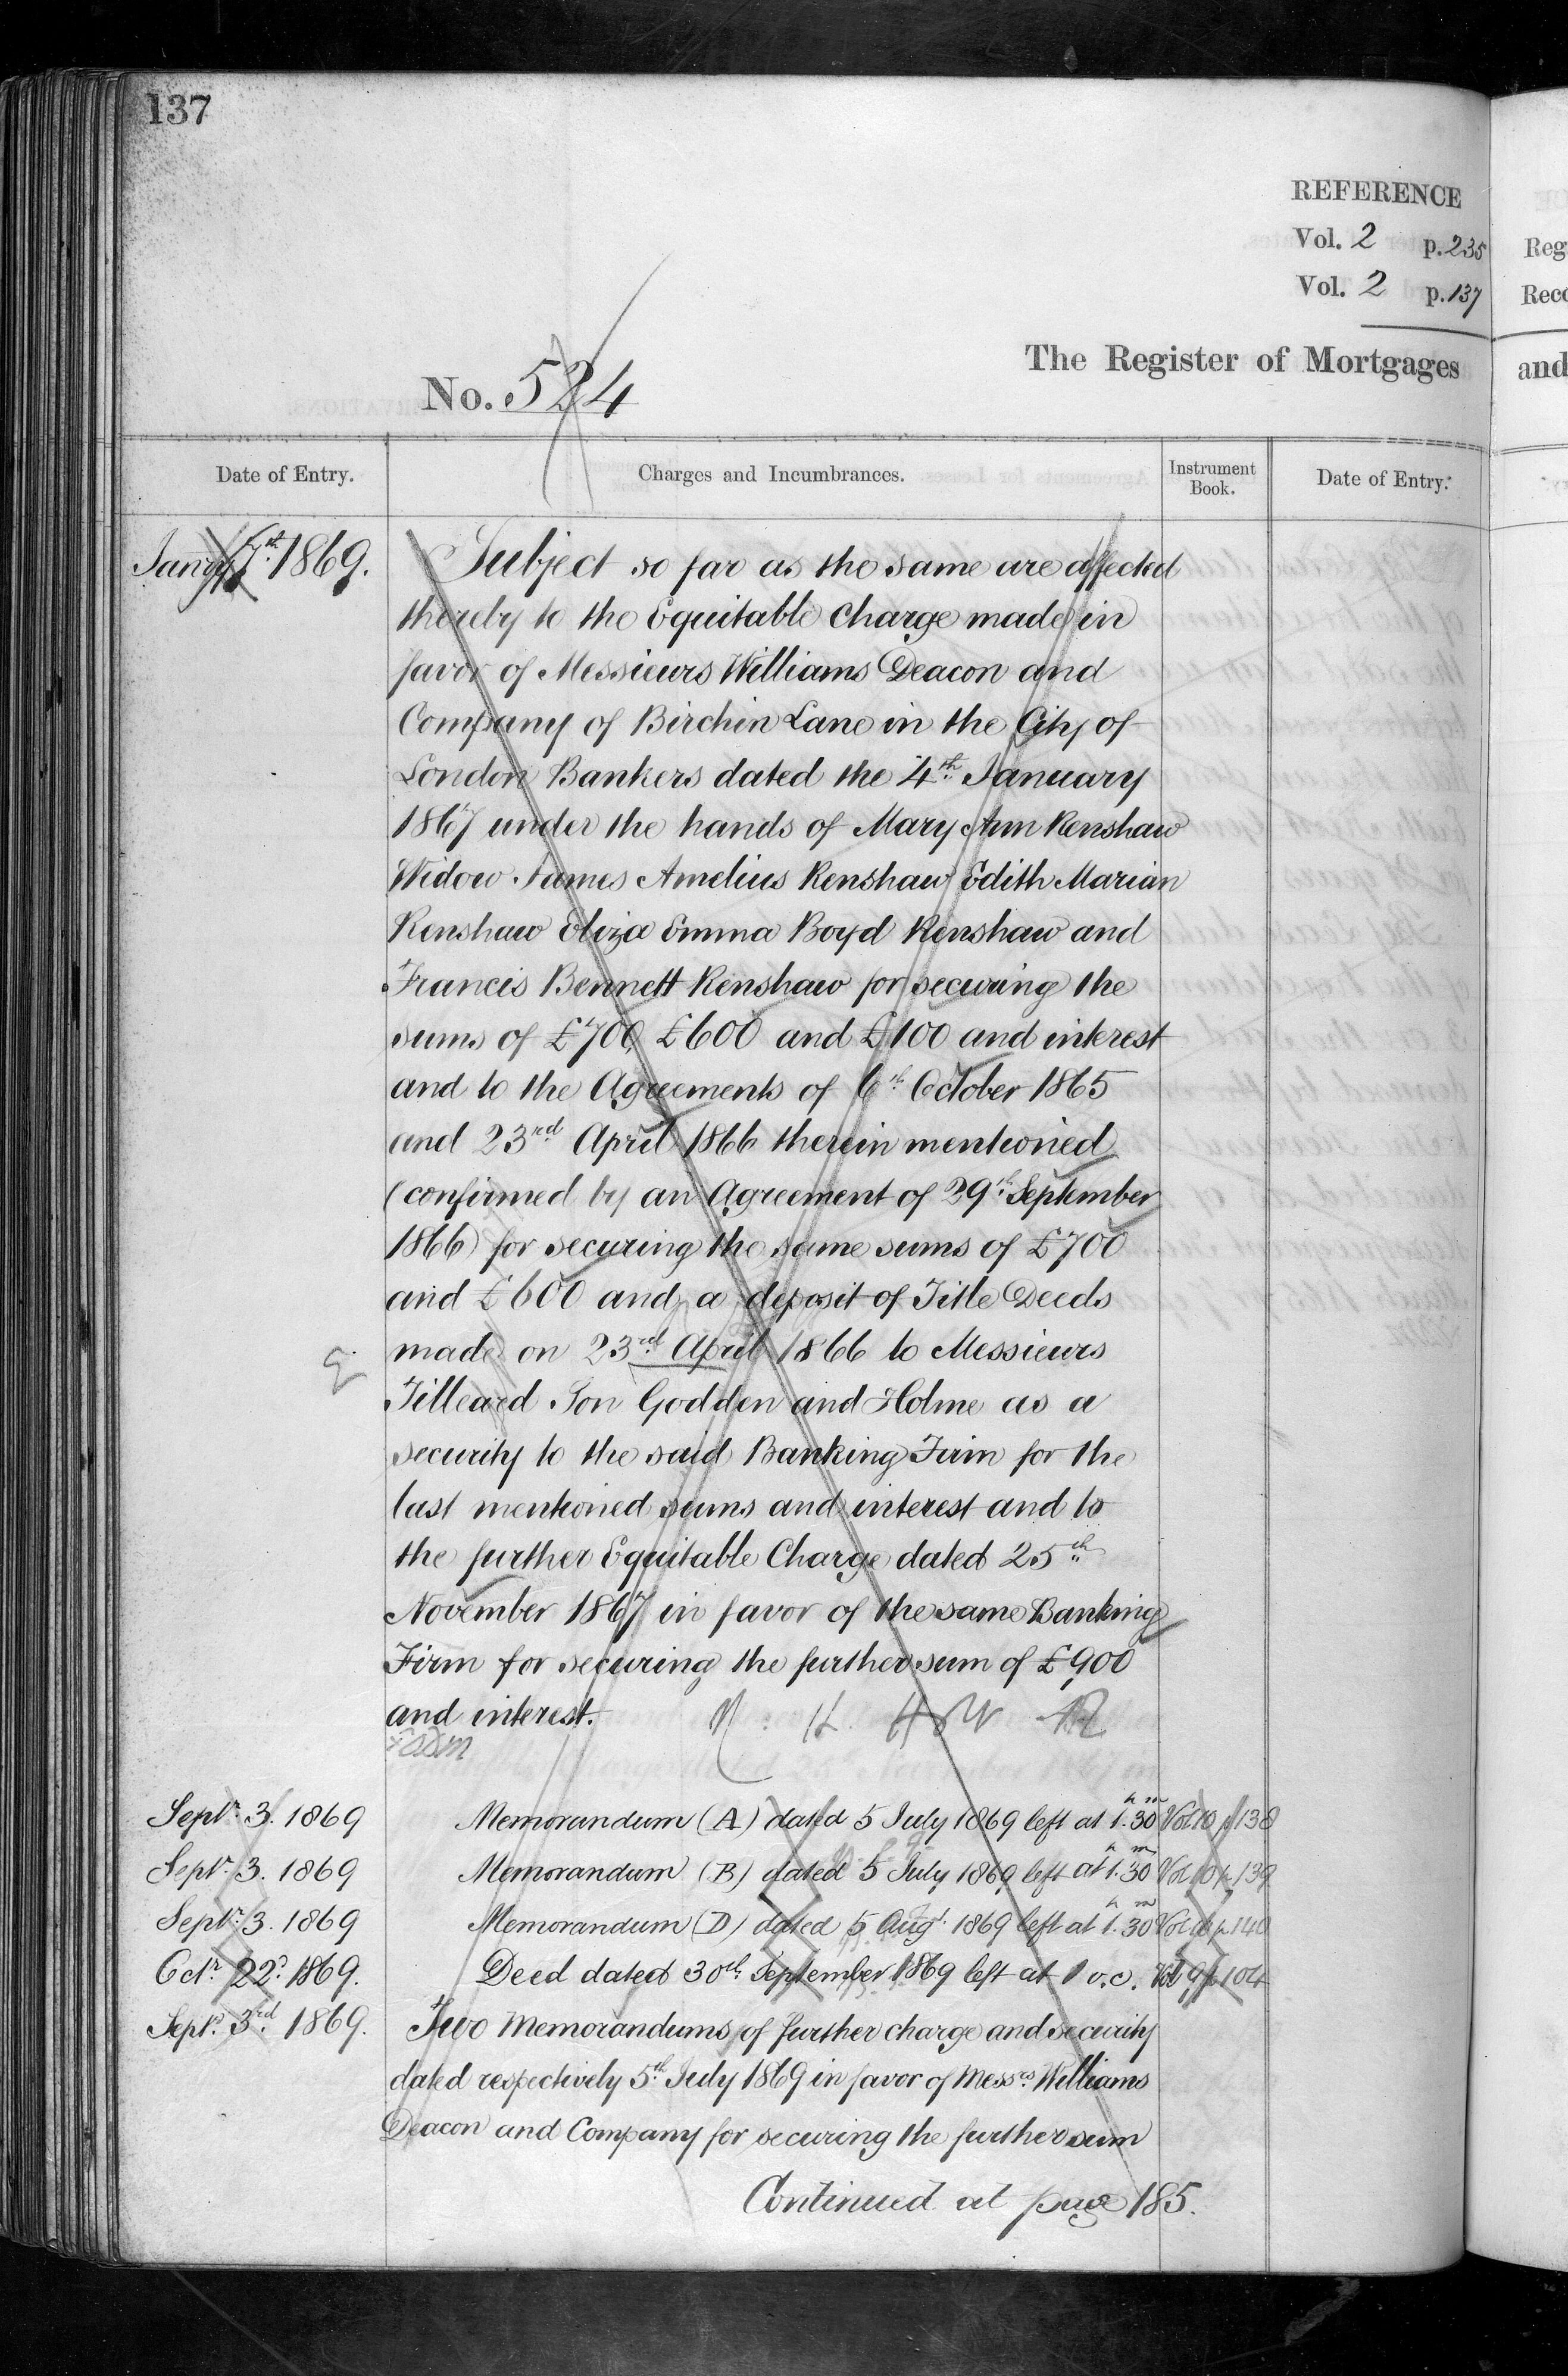 137
REFERENCE
Vol. 2 p. 235
Vol. 2 p. 137
Reg
Reco
The Register of Mortgages
and
No. 524
Date of Entry.
Charges and Incumbrances.
Instrument Book.
Date of Entry.
Jany 7th 1869.
Subject so far as the same are affected
thereby to the Equitable Charge made in
favor of Messieurs Williams Deacon and
Company of Birchin Lane in the City of
London Bankers dated the 4th January
1867 under the hands of Mary Ann Renshaw
Widow James Amelius Renshaw Edith Marian
Renshaw Eliza Emma Boyd Renshaw and
Francis Bennett Renshaw for securing the
sums of £700, £600 and £100 and interest
and to the Agreements of 6th October 1865
and 23rd April 1866 therein mentioned
(confirmed by an Agreement of 29th September
1866) for securing the same sums of £700
and £600 and a deposit of Title Deeds
made on 23rd April 1866 to Messieurs
Tilleard Son Godden and Holme as a
security to the said Banking Firm for the
last mentioned sums and interest and to
the further Equitable Charge dated 25th
November 1867 in favor of the same Banking
Firm for securing the further sum of £900
and interest.
Septr. 3. 1869 Memorandum (A) dated 5 July 1869 left at 1.h 30m Vol 10 p 138
Septr. 3. 1869 Memorandum (B) dated 5 July 1869 left at 1.h 30m Vol 10 p 139
Septr. 3. 1869 Memorandum (D) dated 5 Augt. 1869 left at 1.h 30m Vol 10 p 140
Octr. 22d. 1869. Deed dated 30th September 1869 left at 1 o.c. Vol 9 p 104
Septr. 3rd. 1869. Two Memorandums of further charge and security
dated respectively 5th July 1869 in favor of Messrs. Williams
Deacon and Company for securing the further sum
Continued at page 185.